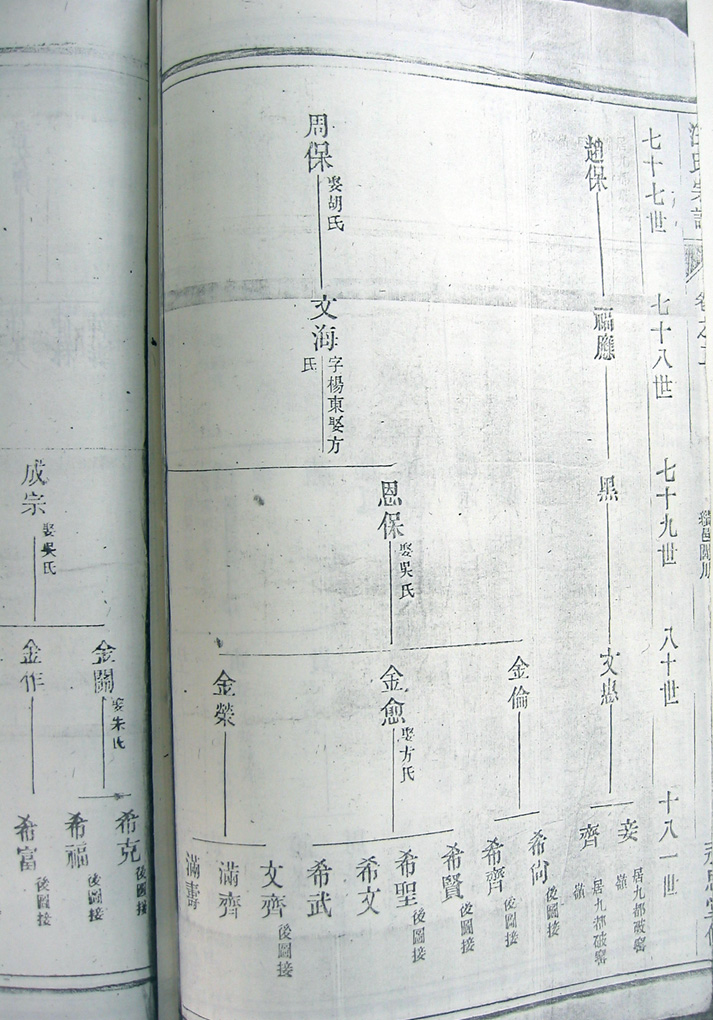 汪氏宗譜
卷之二
七十七世
七十八世
七十九世
八十世
十八一世
趙保
福應
黑
文
齊
居九都破窰
居九都破窰
周保
娶胡氏
文海
字楊東娶方
氏
恩保
娶吳氏
金倫
希尙
後圖接
希齊
後圖接
金愈
娶方氏
希賢
後圖接
希聖
後圖接
希文
希武
金榮
文齊
後圖接
滿齊
滿壽
成宗
娶吳氏
金關
娶朱氏
希克
後圖接
希福
後圖接
金作
希富
後圖接